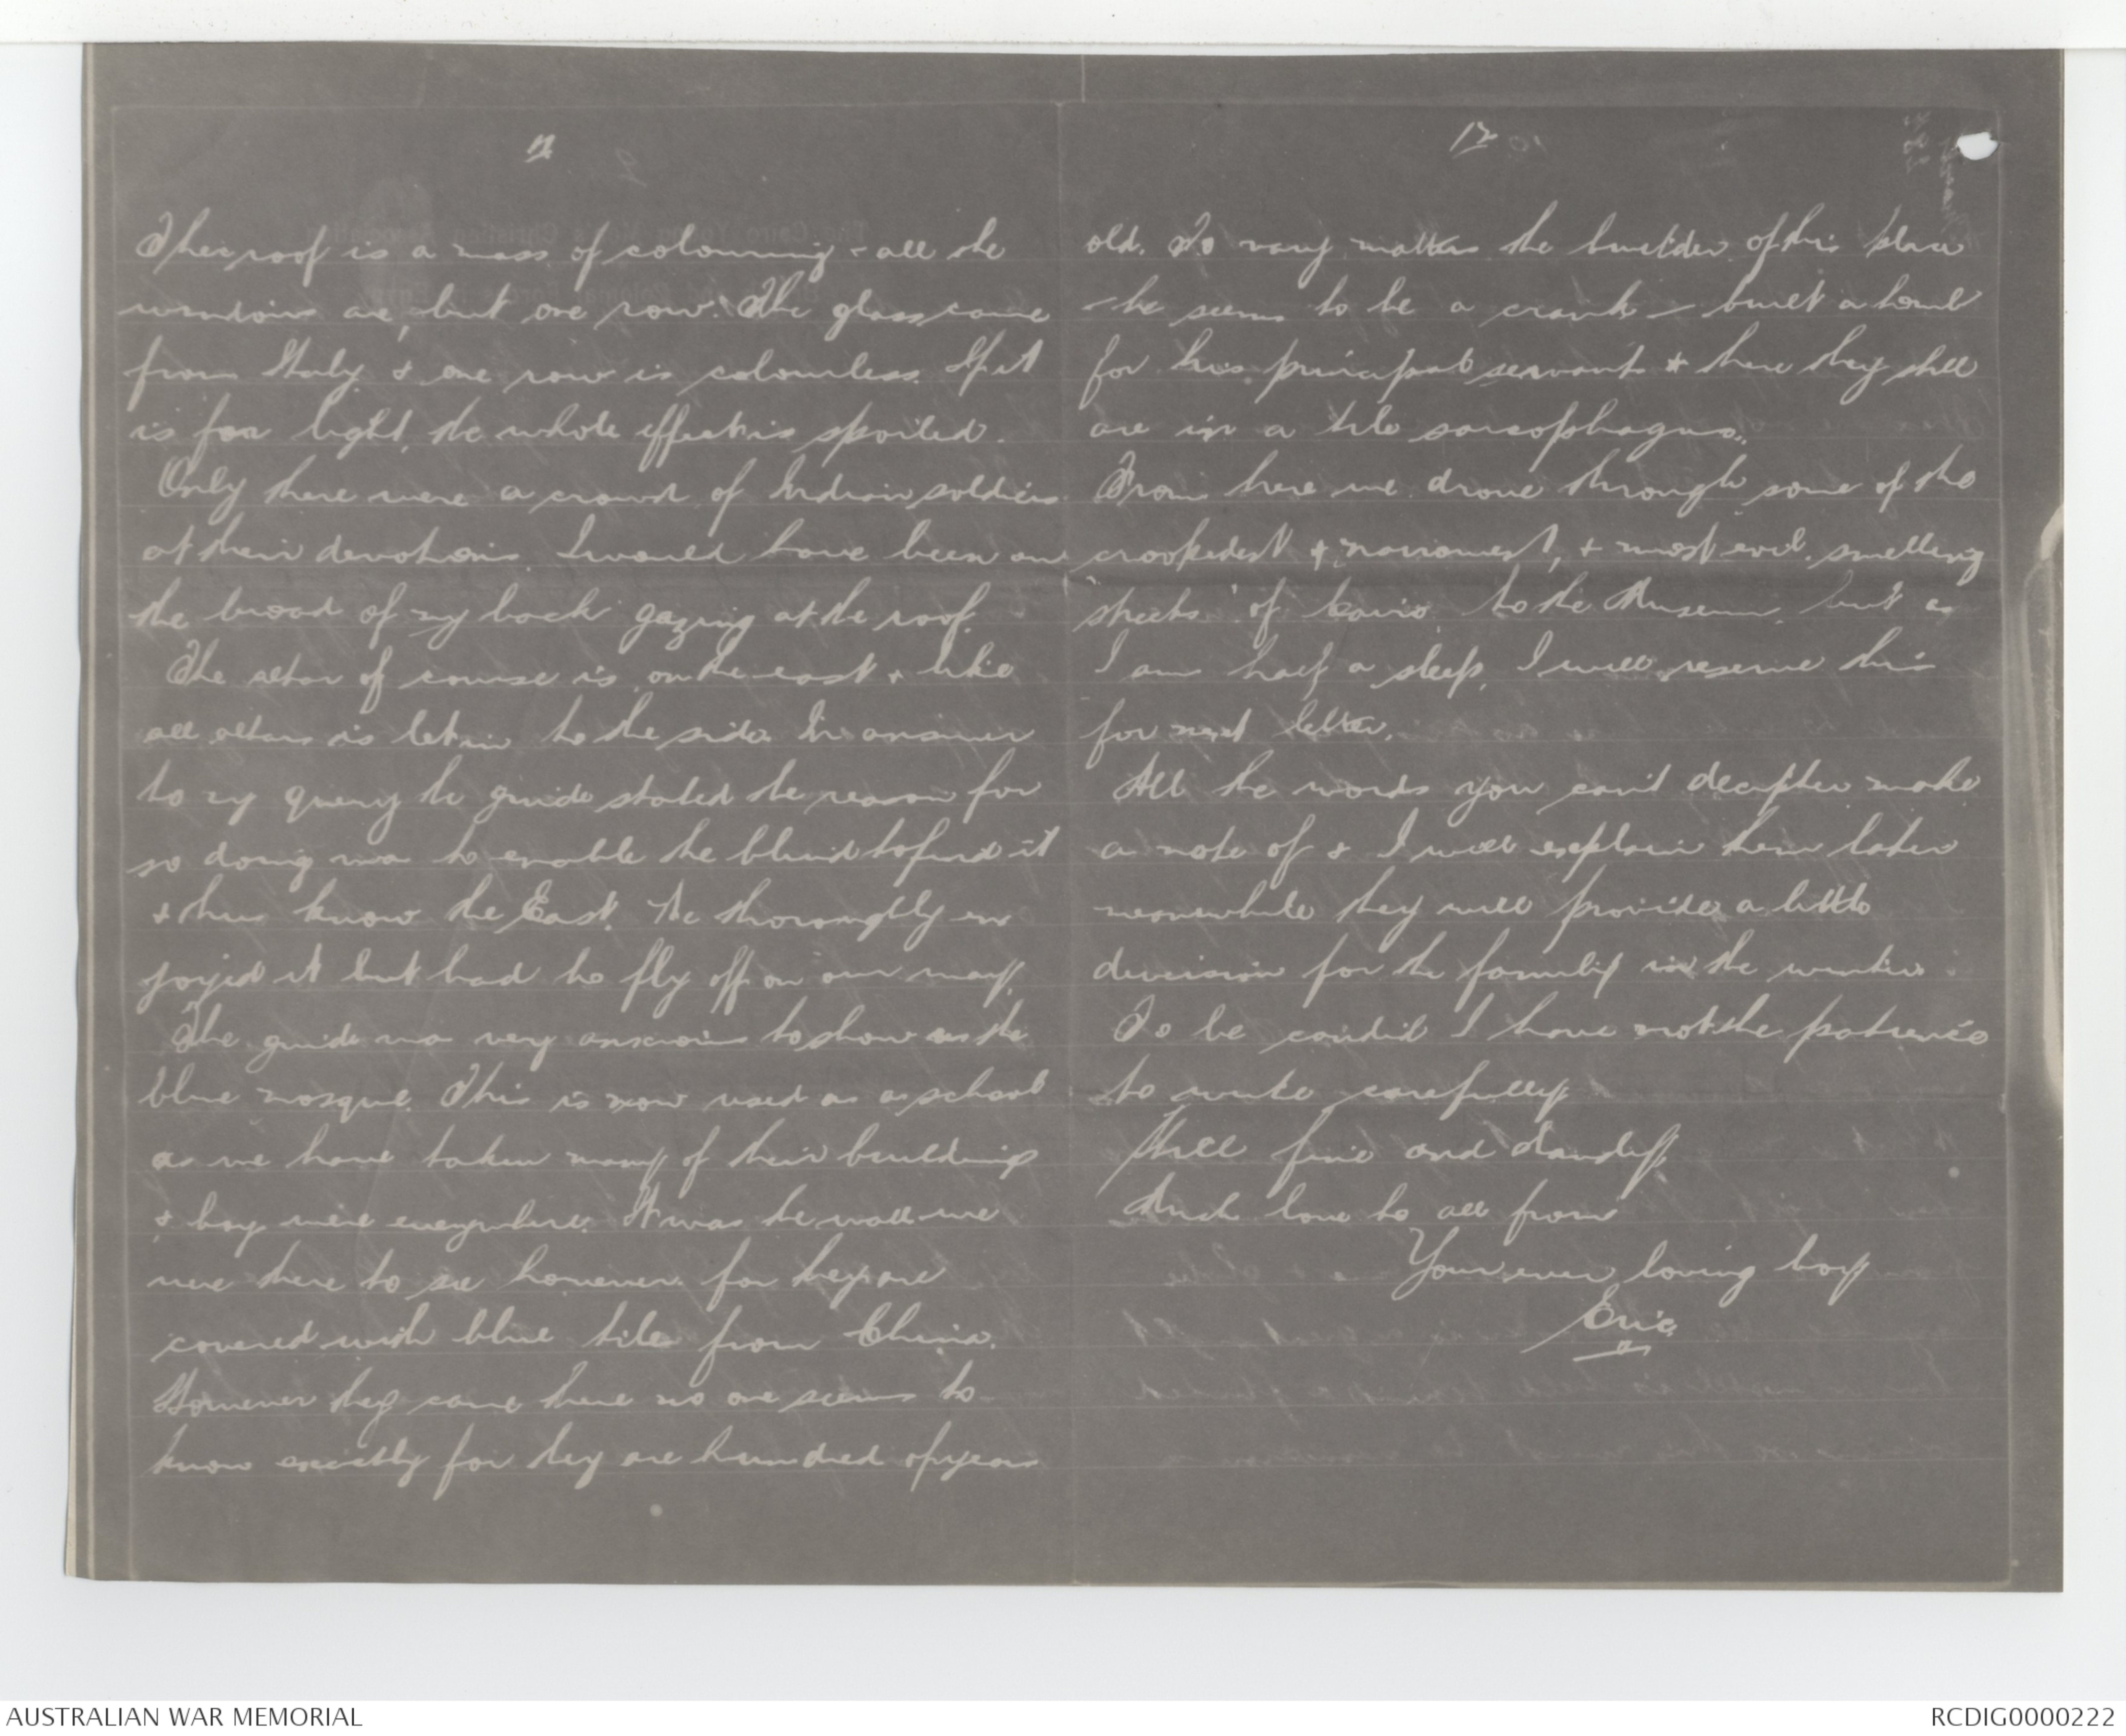 11
The roof is a mass of colouring & all the
windows are, but one row. The glass came
from Italy & one row is colourless. If it
is for light, the whole effect is spoiled.
Only there were a crowd of Indian soldiers
at their devotions. I would have been on
the broad of my back gazing at the roof.
The altar of course is on the east & like
all altars is let in to the side. In answer
to my query the guide stated the reason for
so doing was to enable the blind to find it
& thus know the East. We thoroughly en
joyed it but had to fly off on our way.
The guide was very anxious to show us the
blue mosque. This is now used as a school
as we have taken many of their buildings
& boys were everywhere. It was the wall we
were there to see however for they are
covered with blue tile from China.
However they came here no one seems to
know exactly for they are hundred of years
12
old. To vary matters the builder of this place
- he seems to be a crank - built a home
for his principal servant & there they still
are in a tile sarcophagus.
From here we drove through some of the
crookedest & narrowest, & most evil smelling
streets of Cairo to the Museum, but as
I am half a sleep, I will reserve this
for next letter.
All the words you can't decipher make
a note of & I will explain them later
meanwhile they will provide a little
diversion for the family in the winter.
To be candid I have not the patience
to write carefully
Still fine and dandy.
Much love to all from
Your ever loving boy
Eric
AUSTRALIAN WAR MEMORIAL
RCDIG0000222